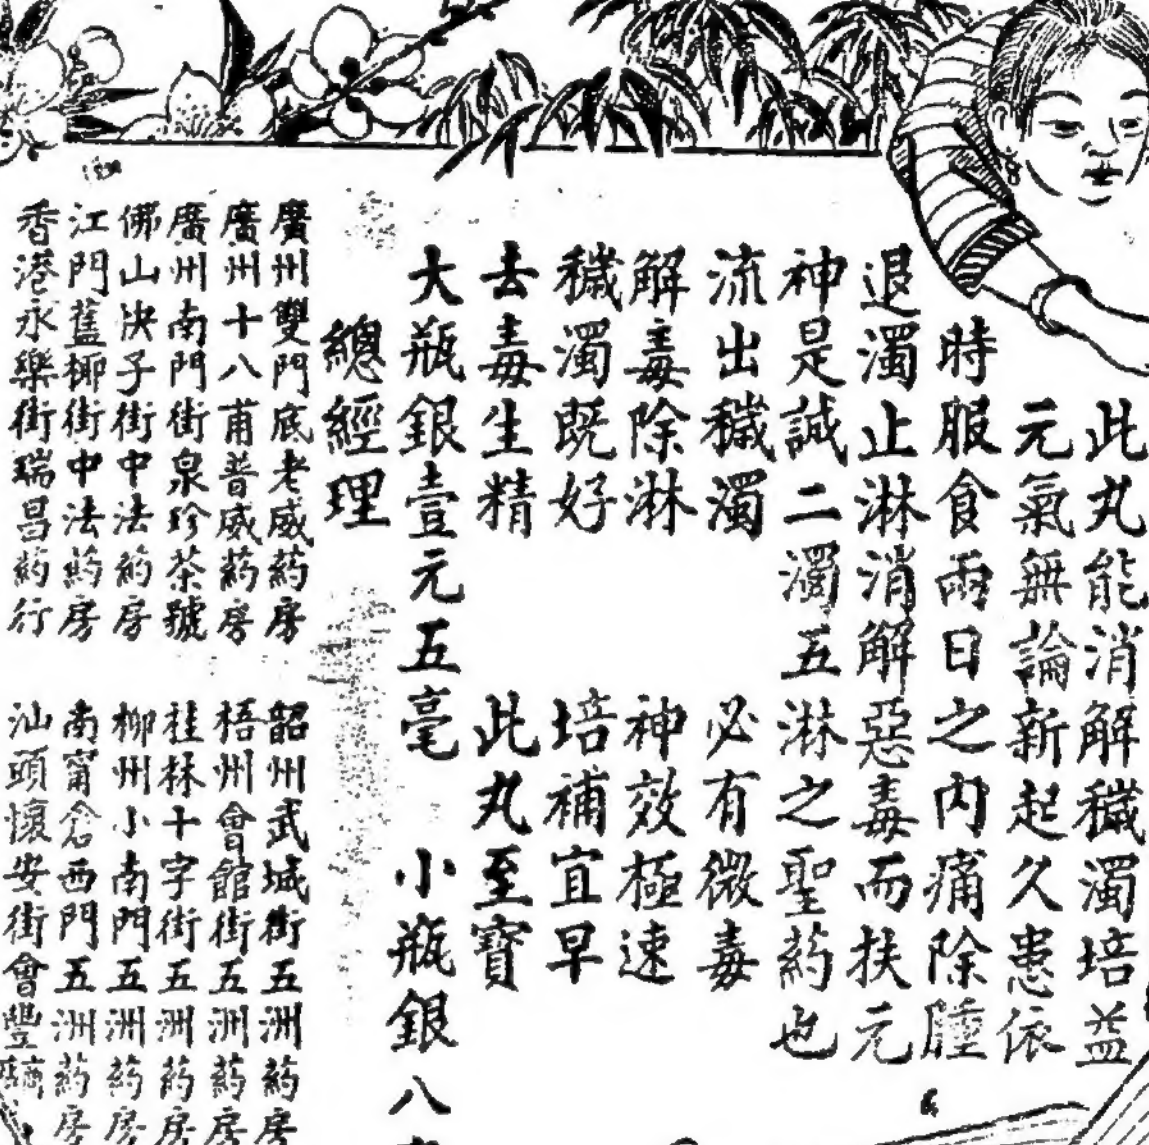 此丸能消解穢濁培益
元氣無論新起久患依
時服食兩日之內痛除腫
退濁止淋消解惡毒而扶元
神是誠二濁五淋之聖葯也
流出穢濁 必有微毒
解毒除淋 神效極速
穢濁既好 培補宜早
去毒生精 此丸至寶
大瓶銀壹元五毫 小瓶銀八
總經理
廣州雙門底老威葯房
廣州十八甫普威葯房
廣州南門街泉珍茶號
佛山快子街中法葯房
江門舊柳街中法葯房
香港永樂街瑞昌葯行
韶州武城街五洲葯房
梧州會館街五洲葯房
桂林十字街五洲葯房
柳州小南門五洲葯房
南甯倉西門五洲葯房
汕頭懷安街會豐